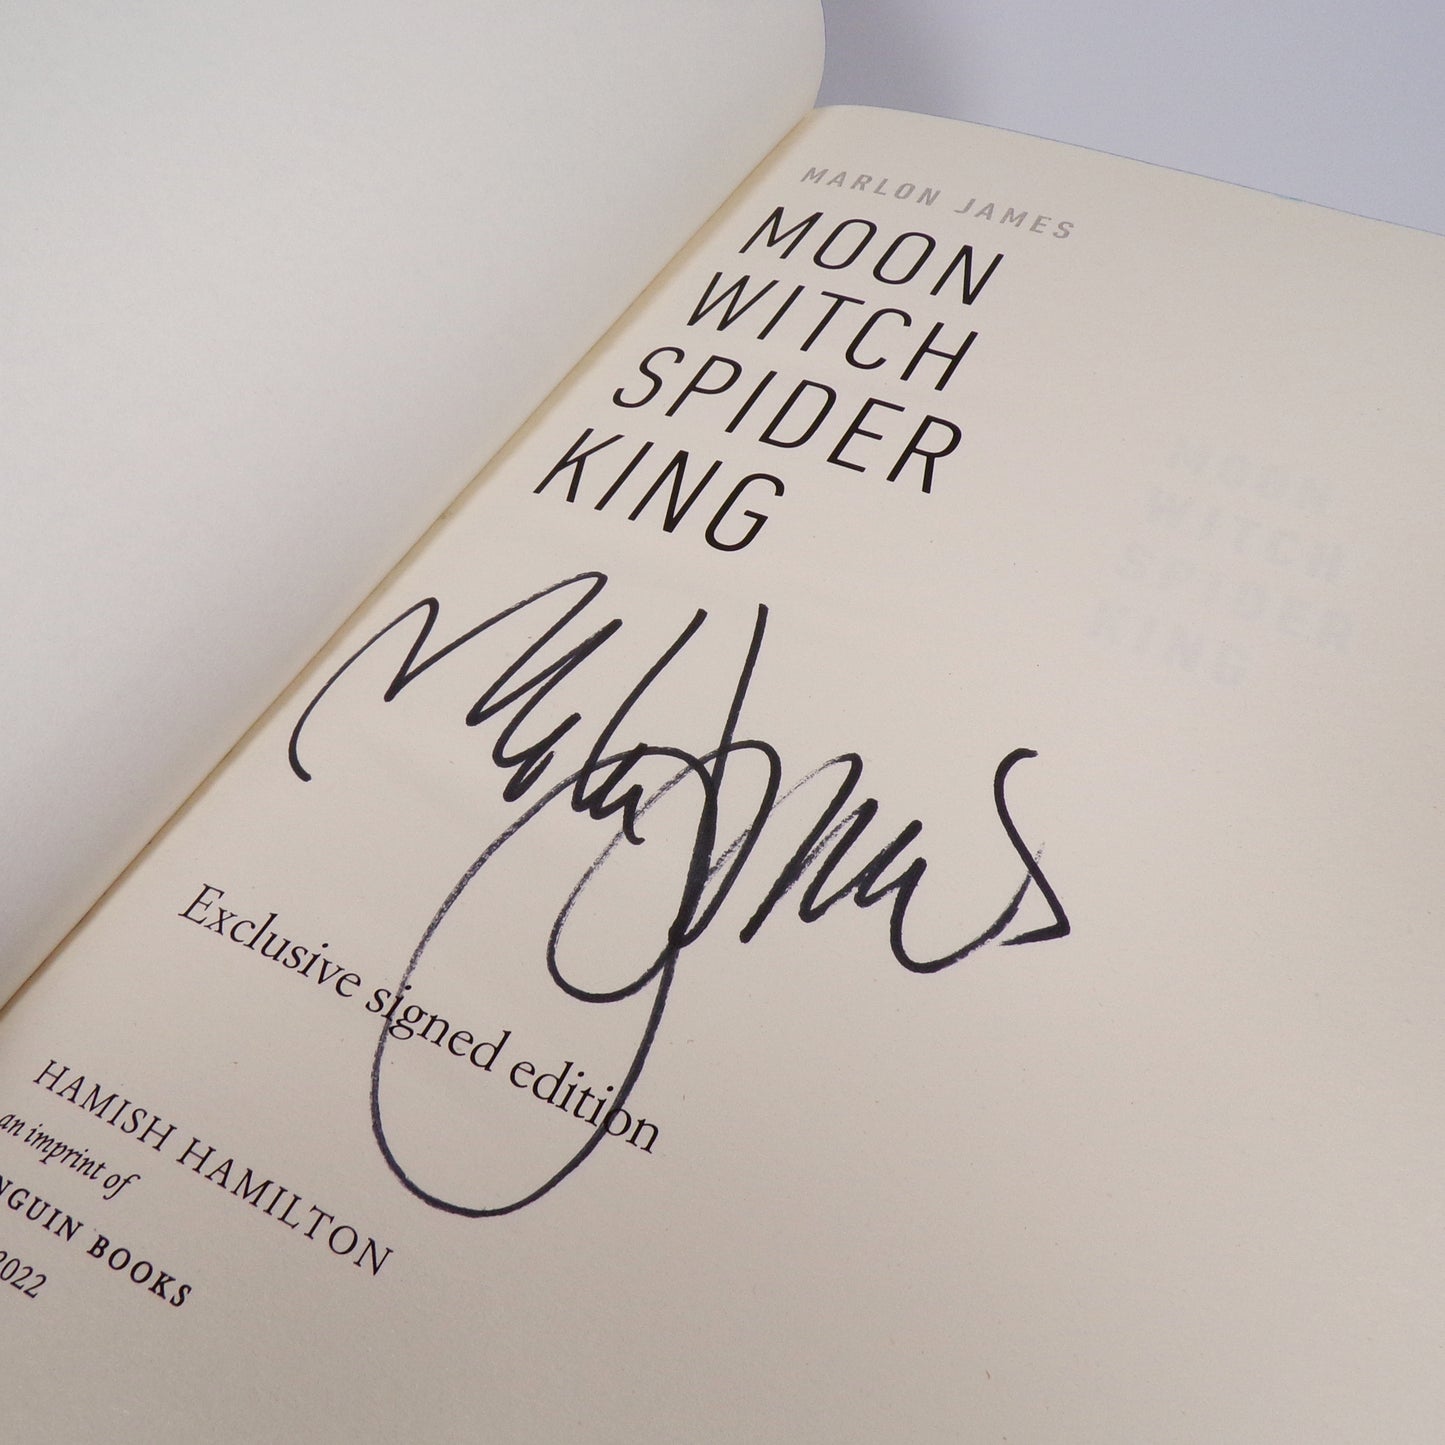 MARLON JAMES
MOON
WITCH
SPIDER
KING
Marlon James
Exclusive signed edition
HAMISH HAMILTON
an imprint of
NGUIN BOOKS
2022
MOON
WITCH
SPIDER
KING